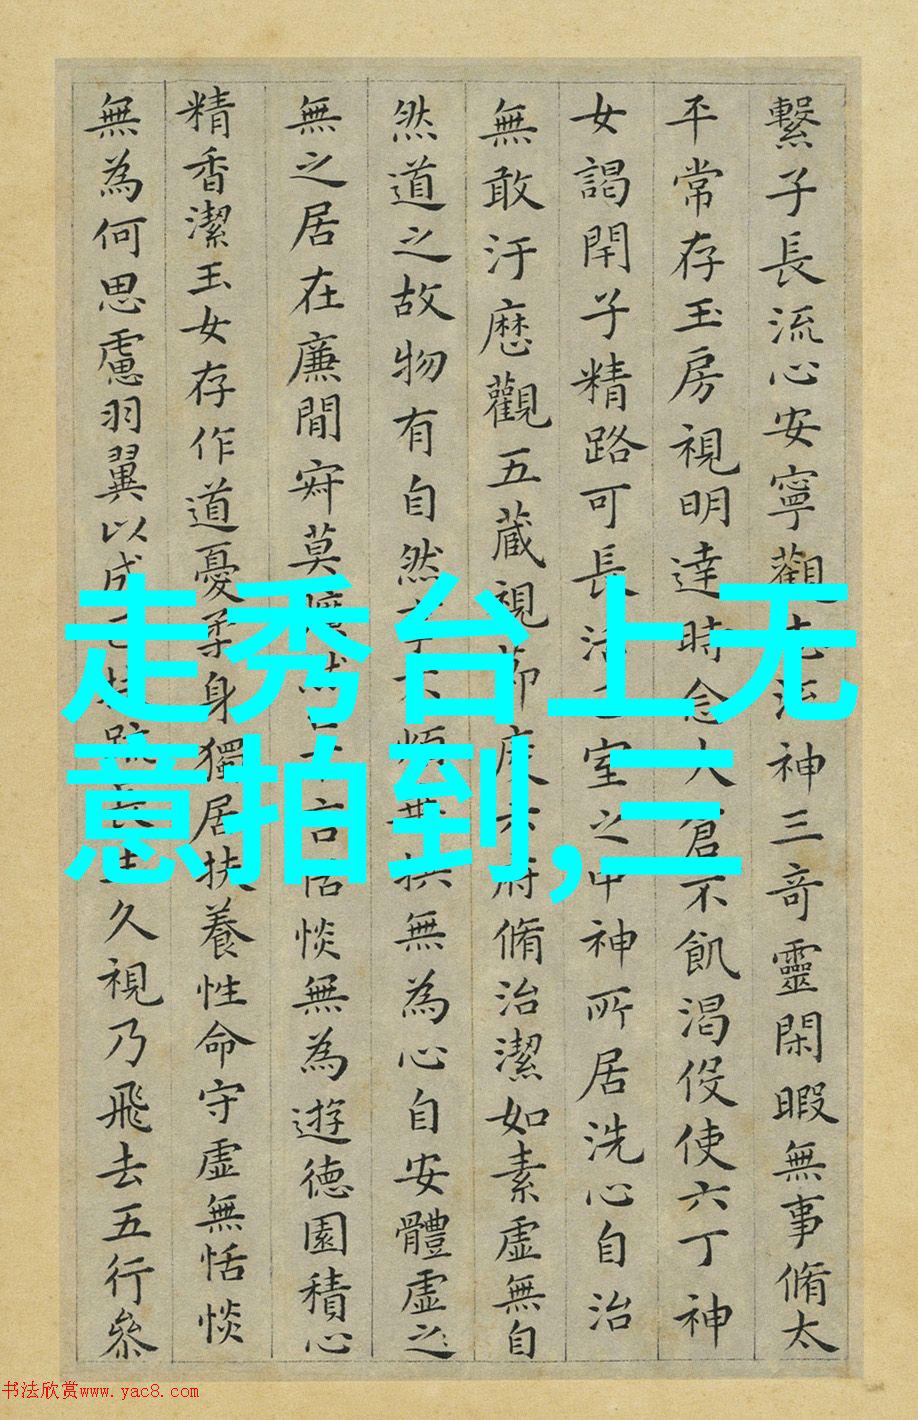 繫子長流心安寧觀神三奇靈閑暇無事脩太
平常存玉房視明達時念大倉不飢渴伇使六丁神
女謁閇子精路可長活室之中神所居洗心自治
無敢汙歷觀五藏視節度六府脩治潔如素虛無自
然道之故物有自然事不煩無為心自安體虛之
無之居在廉間寂莫曠然言恬惔無為遊德園積心
精香潔玉女存作道憂柔身獨居扶養性命守虛無恬惔
無為何思慮羽翼以成久視乃飛去五行參
走秀台上无
意拍到,三
书法欣赏www.yac8.com